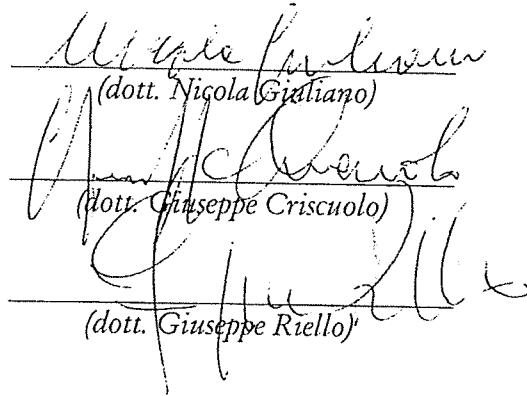 Nicola Giuliano
(dott. Nicola Giuliano)
(dott. Giuseppe Criscuolo)
(dott. Giuseppe Riello)